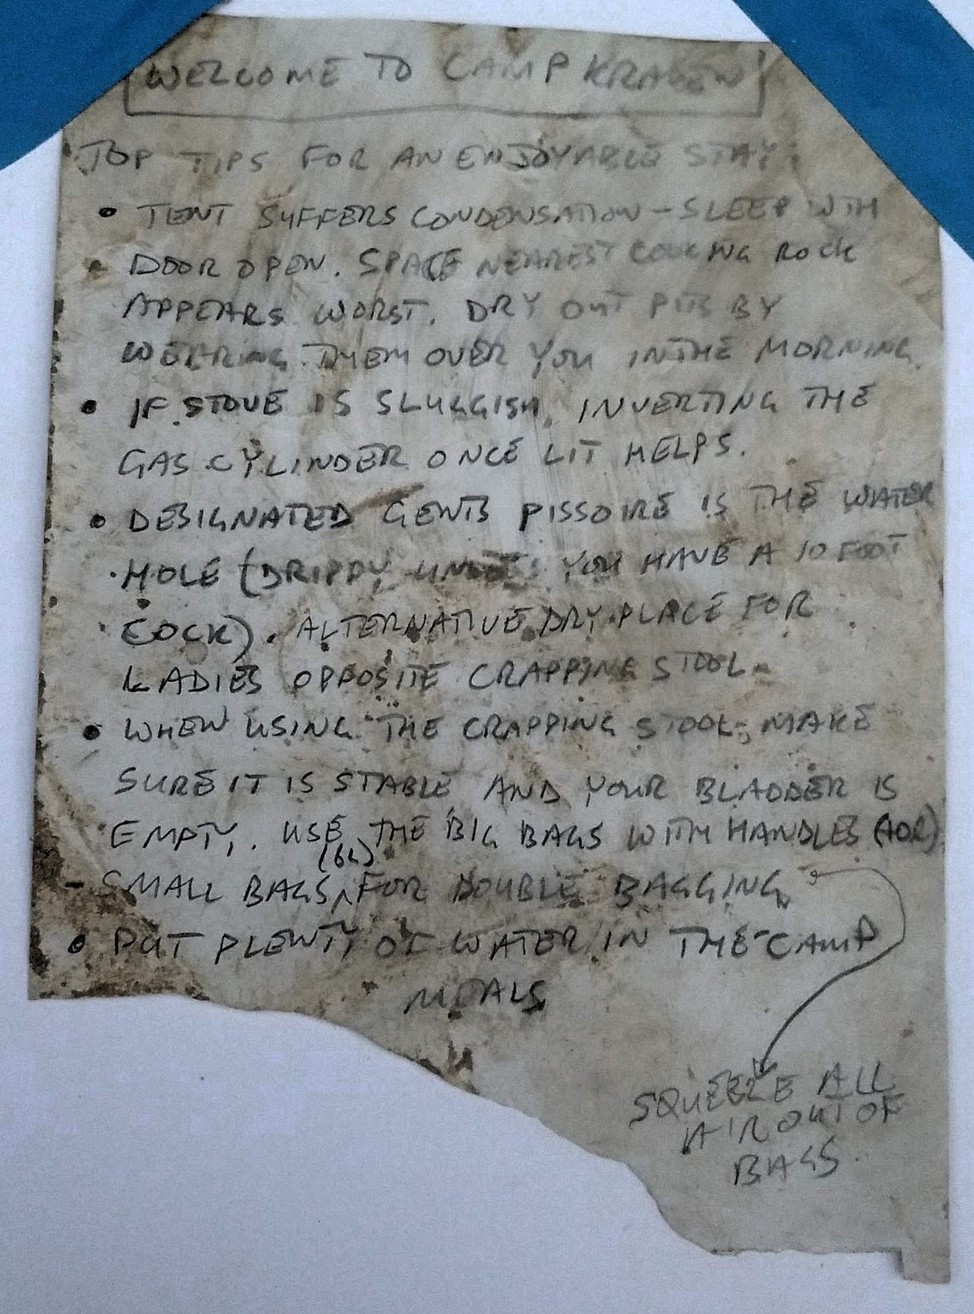 WELCOME TO CAMP KRAKEN
TOP TIPS FOR AN ENJOYABLE STAY:
• TENT SUFFERS CONDENSATION – SLEEP WITH
DOOR OPEN. SPACE NEAREST COOKING ROCK
APPEARS WORST. DRY OUT PITS BY
WEARING THEM OVER YOU IN THE MORNING.
• IF STOVE IS SLUGGISH, INVERTING THE
GAS CYLINDER ONCE LIT HELPS.
• DESIGNATED GENTS PISSOIRE IS THE WATER
HOLE (DRIPPY UNLESS YOU HAVE A 10 FOOT
COCK). ALTERNATIVE DRY PLACE FOR
LADIES OPPOSITE CRAPPING STOOL.
• WHEN USING THE CRAPPING STOOL, MAKE
SURE IT IS STABLE AND YOUR BLADDER IS
EMPTY. USE THE BIG BAGS WITH HANDLES
(6L)
– SMALL BAGS FOR DOUBLE BAGGING
• PUT PLENTY OF WATER IN THE CAMP
MEALS
SQUEEZE ALL
AIR OUT OF
BAGS.